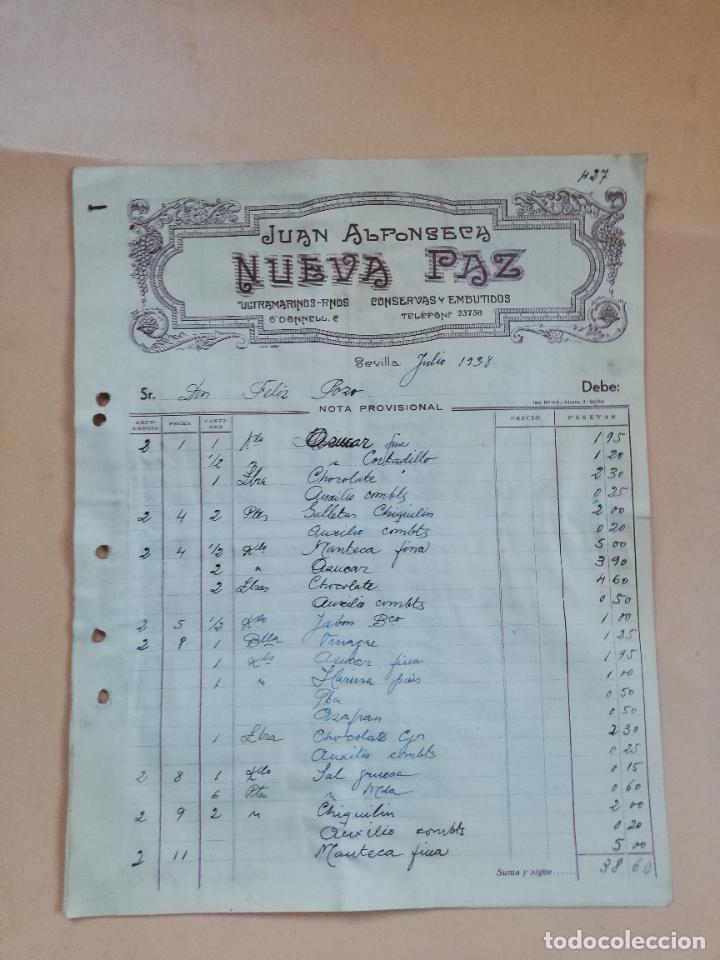 427
JUAN ALFONSECA
NUEVA PAZ
ULTRAMARINOS-FINOS CONSERVAS Y EMBUTIDOS
O'DONNELL. 2 TELÉFONº 23730
Sevilla Julio 1938
Sr. Don Feliz Pozo Debe:
NOTA PROVISIONAL
REFERENCIA FECHA CANTIDAD PRECIO PESETAS
2 1 1 Klo Azucar fina 1 95
1/2 " " Cortadillo 1 20
1 Lbra Chocolate 2 30
Auxilio combts 0 25
2 4 2 Ptes Galletas Chiquilin 2 00
Auxilio combts 0 20
2 4 1/2 Klo Manteca fina 5 00
2 " Azucar 3 90
2 Lbras Chocolate 4 60
Auxilio combts 0 50
2 5 1/2 Klo Jabon Bco 1 00
2 8 1 Blla Vinagre 1 25
1 Klo Azucar fina 1 95
1 " Harina pais 1 00
Pta 0 50
Azafran 0 50
1 Lbra Chocolate Cjs 2 30
Auxilio combts 0 25
2 8 1 Klo Sal gruesa 0 15
6 Ptes " Mda 0 60
2 9 2 " Chiquilin 2 00
Auxilio combts 0 20
2 11 Manteca fina 5 00
Suma y sigue...... 38 60
todocoleccion
todocoleccion.net